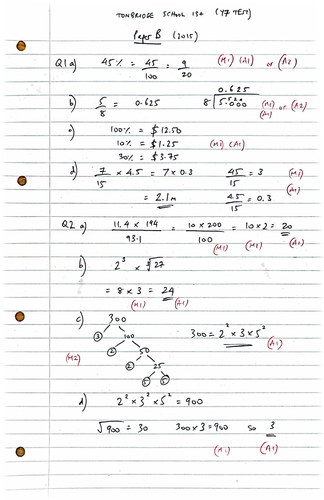 TONBRIDGE SCHOOL 13+ (Y7 TEST)
Paper B (2015)
Q1 a) 45% = 45/100 = 9/20 (M1) (A1) or (A2)
b) 5/8 = 0.625 0.625 8 5.000 (M1) (A1) or (A2)
c) 100% = $12.50
10% = $1.25 (M1) (A1)
30% = $3.75
d) 7/15 × 4.5 = 7 × 0.3 45/15 = 3 (M1)
= 2.1m 4.5/15 = 0.3 (A1)
Q2 a) 11.4 × 194 / 93.1 = 10 × 200 / 100 = 10 × 2 = 20
(M1) (M1) (A1)
b) 2³ × ∛27
= 8 × 3 = 24
(M1) (A1)
c) 300
3 100 300 = 2² × 3 × 5²
(M2) 2 50 (A1)
2 25
5 5
d) 2² × 3² × 5² = 900
√900 = 30 300 × 3 = 900 so 3
(M1) (A1)